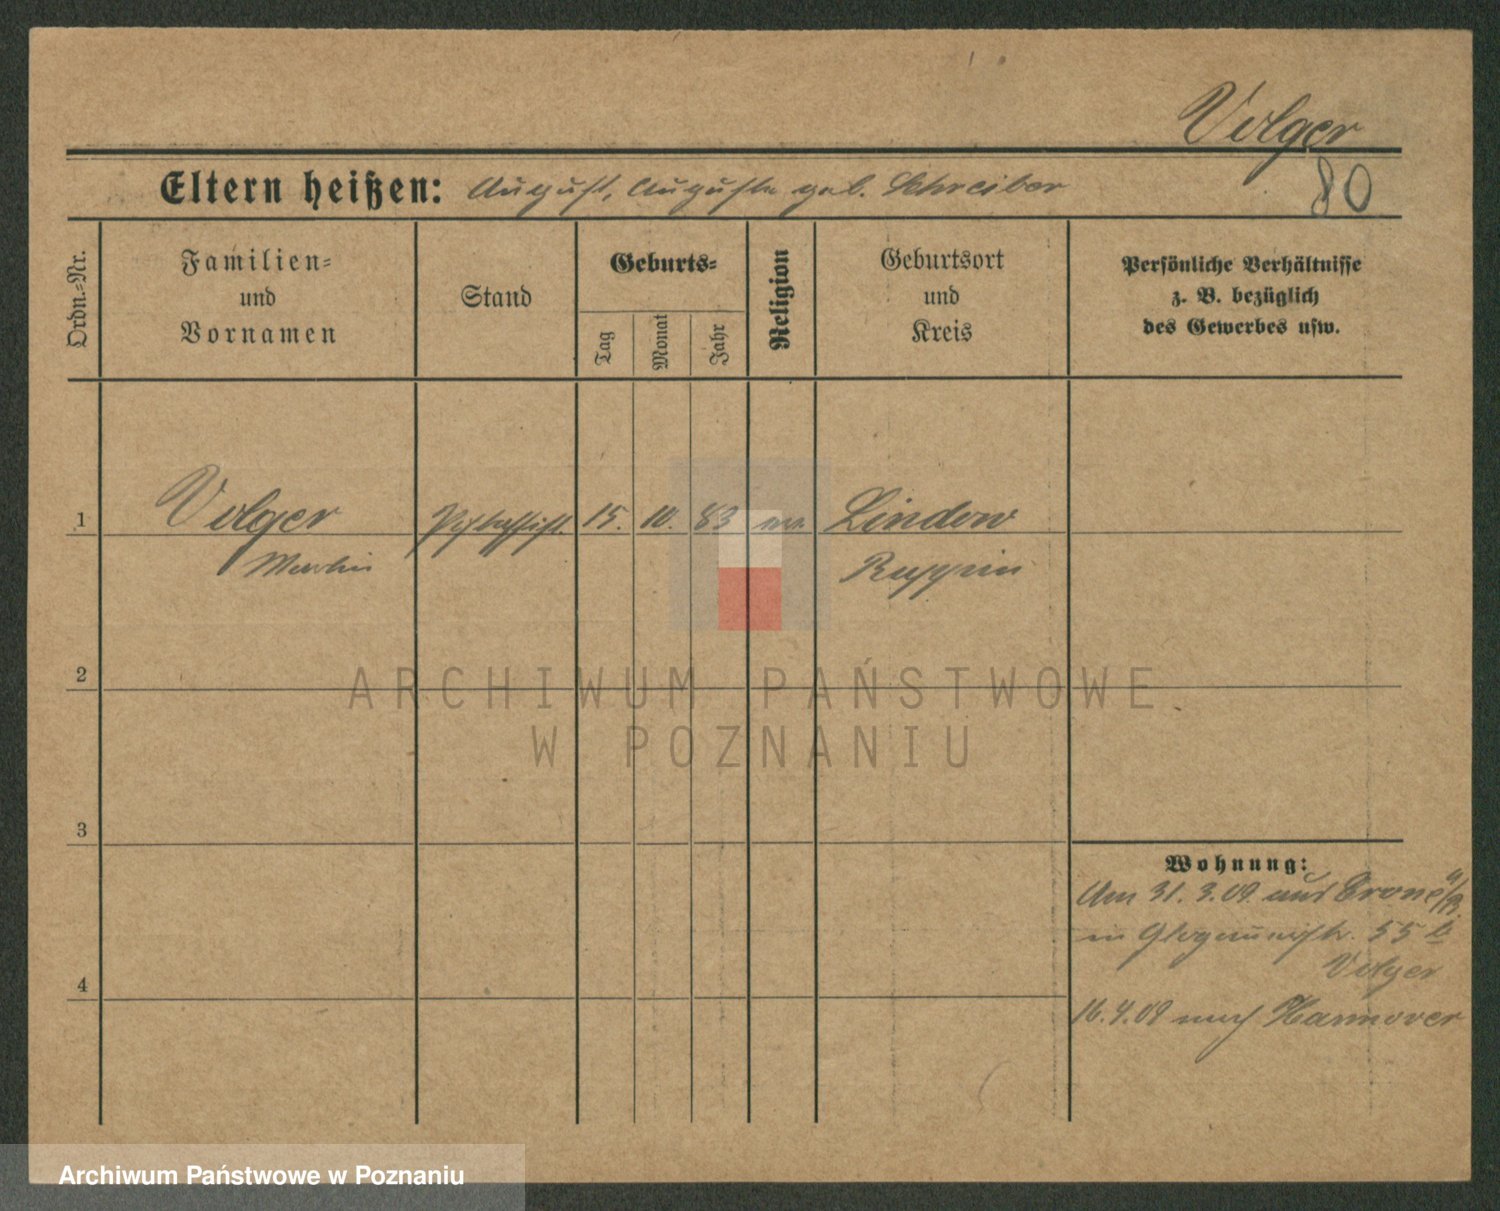 Volger
Eltern heißen: August, Auguste geb. Schreiber
80
Ordn.-Nr.
Familien-
und
Vornamen
Stand
Geburts-
Tag
Monat
Jahr
Religion
Geburtsort
und
Kreis
Persönliche Verhältnisse
z. B. bezüglich
des Gewerbes usw.
1
Volger
Martin
15. 10. 83 ev.
Lindow
Ruppin
2
ARCHIWUM PAŃSTWOWE
W POZNANIU
3
Wohnung:
Am 31.3.09 aus Crone a/B.
in Glogauerstr. 55
Volger
4
16.4.09 nach Hannover
Archiwum Państwowe w Poznaniu